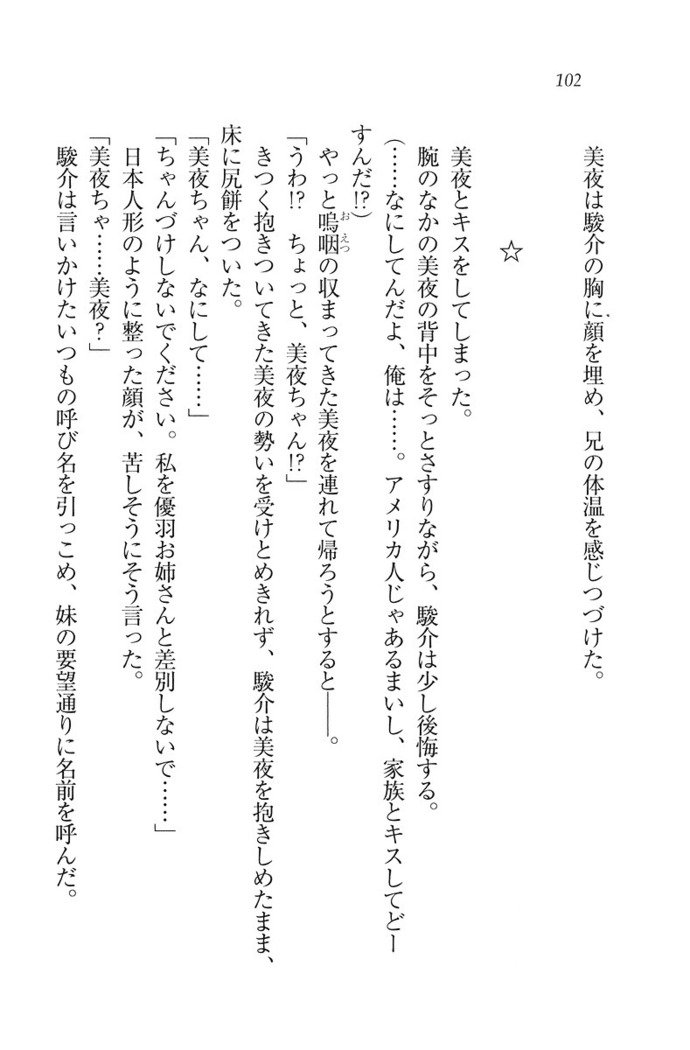 102
美夜は駿介の胸に顔を埋め、兄の体温を感じつづけた。
☆
美夜とキスをしてしまった。
腕のなかの美夜の背中をそっとさすりながら、駿介は少し後悔する。
(……なにしてんだよ、俺は……。アメリカ人じゃあるまいし、家族とキスしてどー
すんだ!?)
やっと嗚咽おえつの収まってきた美夜を連れて帰ろうとすると――。
「うわ!?　ちょっと、美夜ちゃん!?」
きつく抱きついてきた美夜の勢いを受けとめきれず、駿介は美夜を抱きしめたまま、
床に尻餅をついた。
「美夜ちゃん、なにして……」
「ちゃんづけしないでください。私を優羽お姉さんと差別しないで……」
日本人形のように整った顔が、苦しそうにそう言った。
「美夜ちゃ……美夜?」
駿介は言いかけたいつもの呼び名を引っこめ、妹の要望通りに名前を呼んだ。